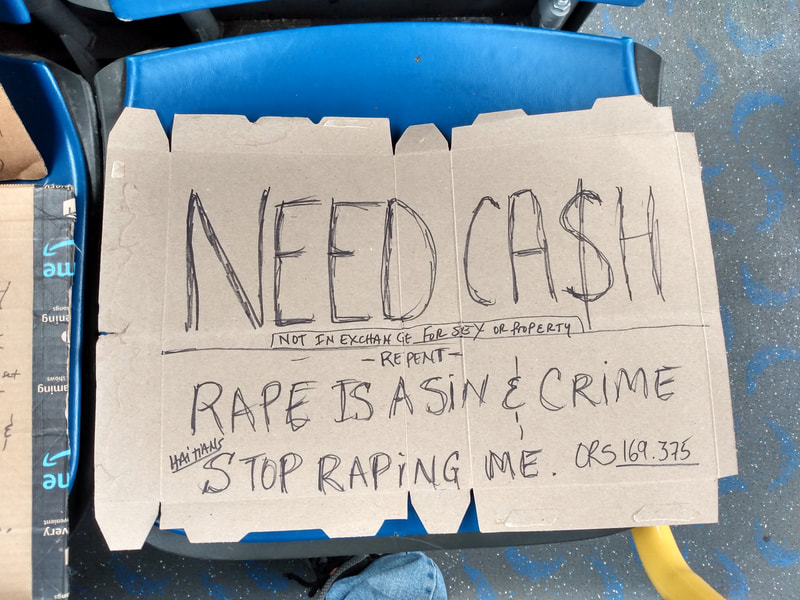 NEED CA$H
NOT IN EXCHANGE FOR SEX OR PROPERTY
- REPENT -
RAPE IS A SIN & CRIME
HAITIANS
STOP RAPING ME. ORS 169.375